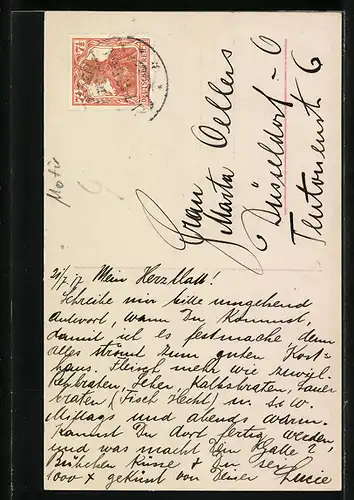 Frau
Marta Oellers
Düsseldorf-O
Teutonenstr 6
Motiv
21/7.17 Mein Herzblatt!
Schreibe mir bitte umgehend
Antwort, wann Du kommst,
damit ich es festmache, denn
alles strömt zum guten Kost=
haus. Fleisch mehr wie zuviel.
Rehbraten, Kalbsbraten, Sauer
braten, (Fisch Hecht) u. s. w.
Mittags und abends warm.
Kannst Du dort fertig werden,
und was macht Dein Gatte?
Bübchen Küsse & Du sei
1000 x geküsst von Deiner Lucie